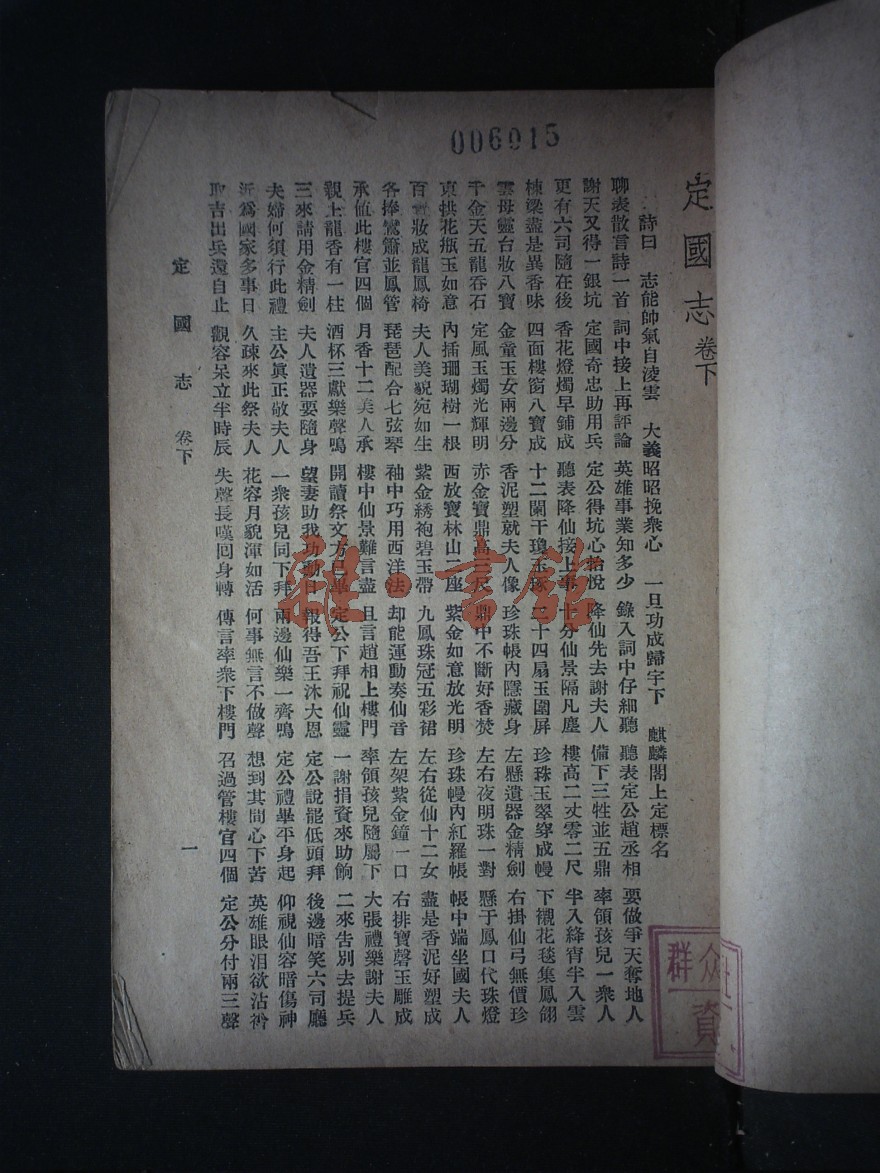 006015
定國志 卷下
詩曰 志能帥氣自淩雲 大義昭昭挽衆心 一旦功成歸宇下 麒麟閣上定標名
聊表散言詩一首 詞中接上再評論 英雄事業知多少 錄入詞中仔細聽 聽表定公趙丞相 要做爭天奪地人
謝天又得一銀坑 定國奇忠助用兵 定公得坑心怡悅 降仙先去謝夫人 備下三牲並五鼎 率領孩兒一衆人
更有六司隨在後 香花燈燭早鋪成 聽表降仙接上事 十分仙景隔凡塵 樓高二丈零二尺 半入絳霄半入雲
棟梁盡是異香味 四面樓窗八寶成 十二闌干瓊玉琢 二十四扇玉圍屏 珍珠玉翠穿成幔 下襯花毯集鳳翎
雲母靈台妝八寶 金童玉女兩邊分 香泥塑就夫人像 珍珠帳內隱藏身 左懸遺器金精劍 右掛仙弓無價珍
千金天五龍吞石 定風玉燭光輝明 赤金寶鼎高三尺 鼎中不斷好香焚 左右夜明珠一對 懸于鳳口代珠燈
東拱花瓶玉如意 內插珊瑚樹一根 西放寶林山一座 紫金如意放光明 珍珠幔內紅羅帳 帳中端坐國夫人
百寶妝成龍鳳椅 夫人美貌宛如生 紫金綉袍碧玉帶 九鳳珠冠五彩裙 左右從仙十二女 盡是香泥好塑成
各捧鸞簫並鳳管 琵琶配合七弦琴 袖中巧用西洋法 却能運動奏仙音 左架紫金鐘一口 右排寶磬玉雕成
承値此樓官四個 月香十二美人承 樓中仙景難言盡 且言趙相上樓門 率領孩兒隨屬下 大張禮樂謝夫人
親上龍香有一柱 酒杯三獻樂聲鳴 開讀祭文方已畢 定公下拜祝仙靈 一謝捐資來助餉 二來告別去提兵
三來請用金精劍 夫人遺器要隨身 望妻助我功勳日 報得吾王沐大恩 定公說罷低頭拜 後邊暗笑六司廳
夫婦何須行此禮 主公眞正敬夫人 一衆孩兒同下拜 兩邊仙樂一齊鳴 定公禮畢平身起 仰視仙容暗傷神
近爲國家多事日 久疎來此祭夫人 花容月貌渾如活 何事無言不做聲 想到其間心下苦 英雄眼泪欲沾衿
取吉出兵還自止 觀容呆立半時辰 失聲長嘆回身轉 傳言率衆下樓門 召過管樓官四個 定公分付兩三聲
定國志 卷下
一
雜·書館
群众
資